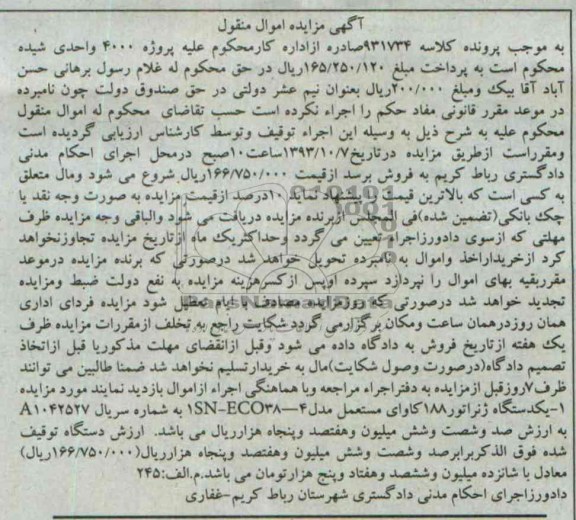 آگهی مزایده اموال منقول
به موجب پرونده کلاسه ۹۳۱۷۳۴صادره ازاداره کارمحکوم علیه پروژه ۴۰۰۰ واحدی شیده
محکوم است به پرداخت مبلغ ۱۶۵/۲۵۰/۱۲۰ریال در حق محکوم له غلام رسول برهانی حسن
آباد آقا بیک ومبلغ ۲۰۰/۰۰۰ریال بعنوان نیم عشر دولتی در حق صندوق دولت چون نامبرده
در موعد مقرر قانونی مفاد حکم را اجراء نکرده است حسب تقاضای محکوم له اموال منقول
محکوم علیه به شرح ذیل به وسیله این اجراء توقیف وتوسط کارشناس ارزیابی گردیده است
ومقرراست ازطریق مزایده درتاریخ۱۳۹۳/۱۰/۷ساعت۱۰صبح درمحل اجرای احکام مدنی
دادگستری رباط کریم به فروش برسد ازقیمت ۱۶۶/۷۵۰/۰۰۰ریال شروع می شود ومال متعلق
به کسی است که بالاترین قیمت پیشنهاد نماید ۱۰درصد ازقیمت مزایده به صورت وجه نقد یا
چک بانکی(تضمین شده)فی المجلس ازبرنده مزایده دریافت می شود والباقی وجه مزایده ظرف
مهلتی که ازسوی دادورزاجراء تعیین می گردد وحداکثریک ماه ازتاریخ مزایده تجاوزنخواهد
کرد ازخریداراخذ واموال به نامبرده تحویل خواهد شد درصورتی که برنده مزایده درموعد
مقرربقیه بهای اموال را نپردازد سپرده اوپس ازکسرهزینه مزایده به نفع دولت ضبط ومزایده
تجدید خواهد شد درصورتی که روزمزایده مصادف باایام تعطیل شود مزایده فردای اداری
همان روزدرهمان ساعت ومکان برگزارمی گردد شکایت راجع به تخلف ازمقررات مزایده ظرف
یک هفته ازتاریخ فروش به دادگاه داده می شود وقبل ازانقضای مهلت مذکوریا قبل ازاتخاذ
تصمیم دادگاه(درصورت وصول شکایت)مال به خریدارتسلیم نخواهد شد ضمنا طالبین می توانند
ظرف۷روزقبل ازمزایده به دفتراجراء مراجعه وبا هماهنگی اجراء ازاموال بازدید نمایند مورد مزایده
۱-یکدستگاه ژنراتور۱۸۸کاوای مستعمل مدل۴—۱SN-ECO۳۸ به شماره سریال A۱۰۴۲۵۲۷
به ارزش صد وشصت وشش میلیون وهفتصد وپنجاه هزارریال می باشد. ارزش دستگاه توقیف
شده فوق الذکربرابرصد وشصت وشش میلیون وهفتصد وپنجاه هزارریال(۱۶۶/۷۵۰/۰۰۰ریال)
معادل با شانزده میلیون وششصد وهفتاد وپنج هزارتومان می باشد.م.الف:۲۴۵
دادورزاجرای احکام مدنی دادگستری شهرستان رباط کریم-غفاری